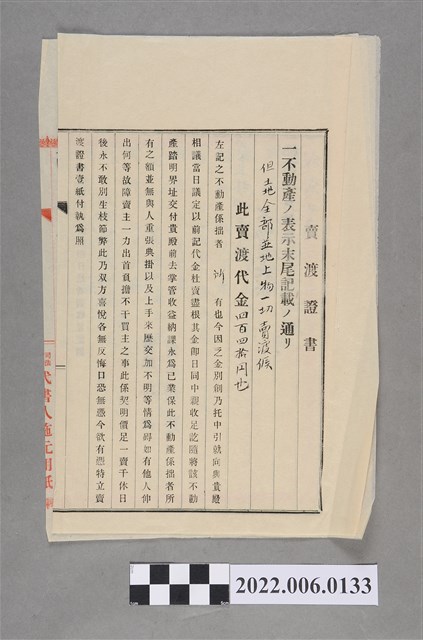 賣渡證書
一不動產ノ表示末尾記載ノ通リ
但土地全部並地上物一切賣渡候
此賣渡代金四百四拾円也
左記之不動產係拙者 有也今因乏金別創乃托中引就向與貴殿
相議當日議定以前記代金杜賣盡根其金即日同中親收足訖隨將該不動
產踏明界址交付貴殿前去掌管收益納課永為已業保此不動產係拙者所
有之額並無與人重張典掛以及上手來歷交加不明等情為碍如有他人伸
出何等故障賣主一力出首負擔不干買主之事此係契明價足一賣千休日
後永不敢別生枝節弊此乃双方喜悅各無反悔口恐無憑今欲有憑特立賣
渡證書壹紙付執為照
代書人 元用紙
2022.006.0133